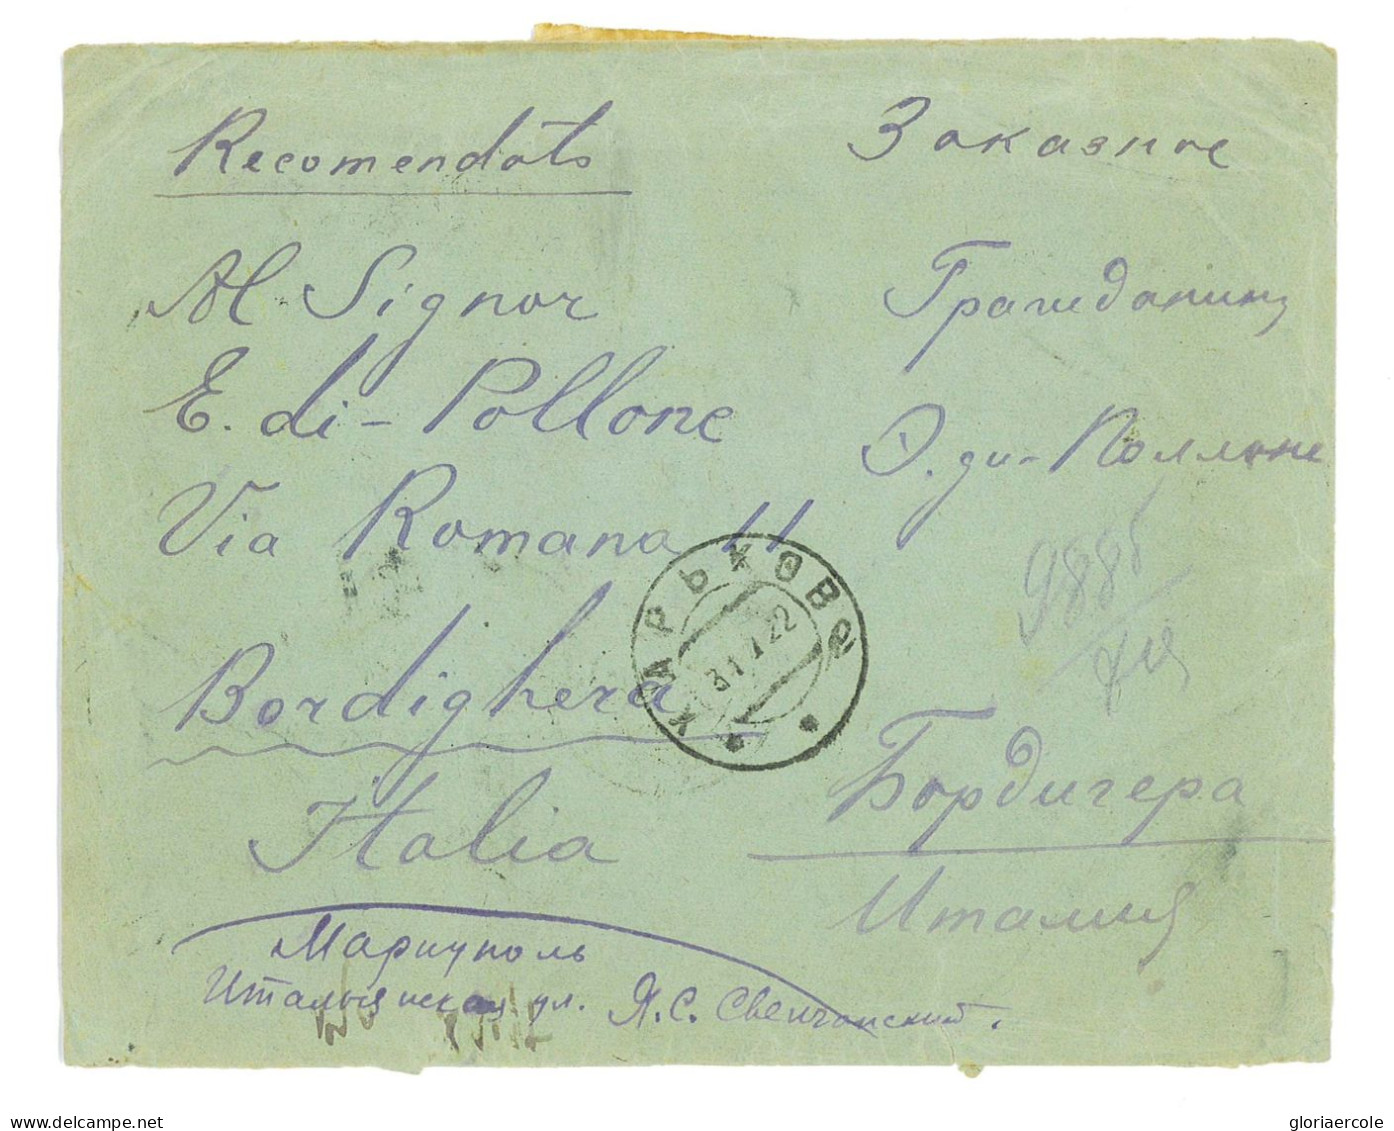 Recomendato
Заказное
Al Signor
Гражданину
E. di-Pollone
Э. ди-Поллоне
Via Romana 11
ХАРЬКОВ
31.7.22
9885
Bordighera
Бордигера
Italia
Италия
Мариуполь
Итальянская ул. Я. С. Свенчанский.
delcampe.net
gloriaercole